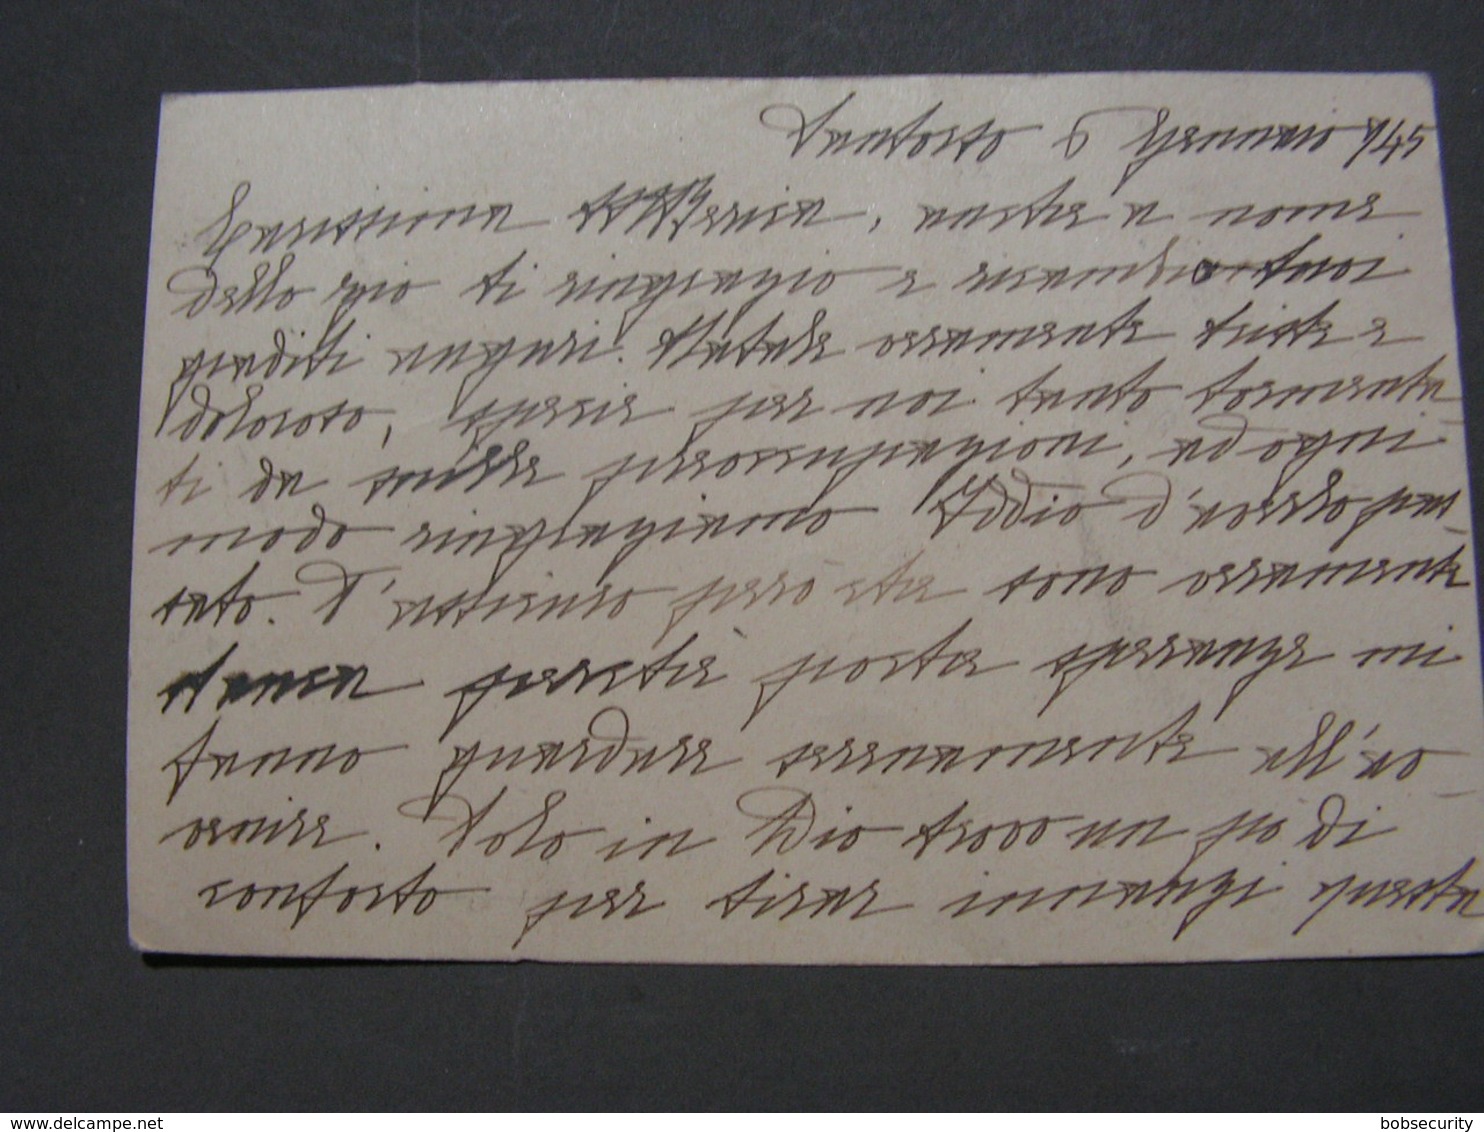 6 Gennaio 945
Carissima anche a nome
dello zio ti ringrazio e ricambio i tuoi
graditi auguri. Natale veramente triste e
doloroso, specie per noi tanto tormenta-
ti da mille preoccupazioni, ad ogni
modo ringraziamo Iddio d'averlo pas-
sato. T'assicuro però che sono veramente
stanca perché poche speranze mi
fanno guardare serenamente all'av-
venire. Solo in Dio trovo un pò di
conforto per tirar innanzi questa
bobsecurity